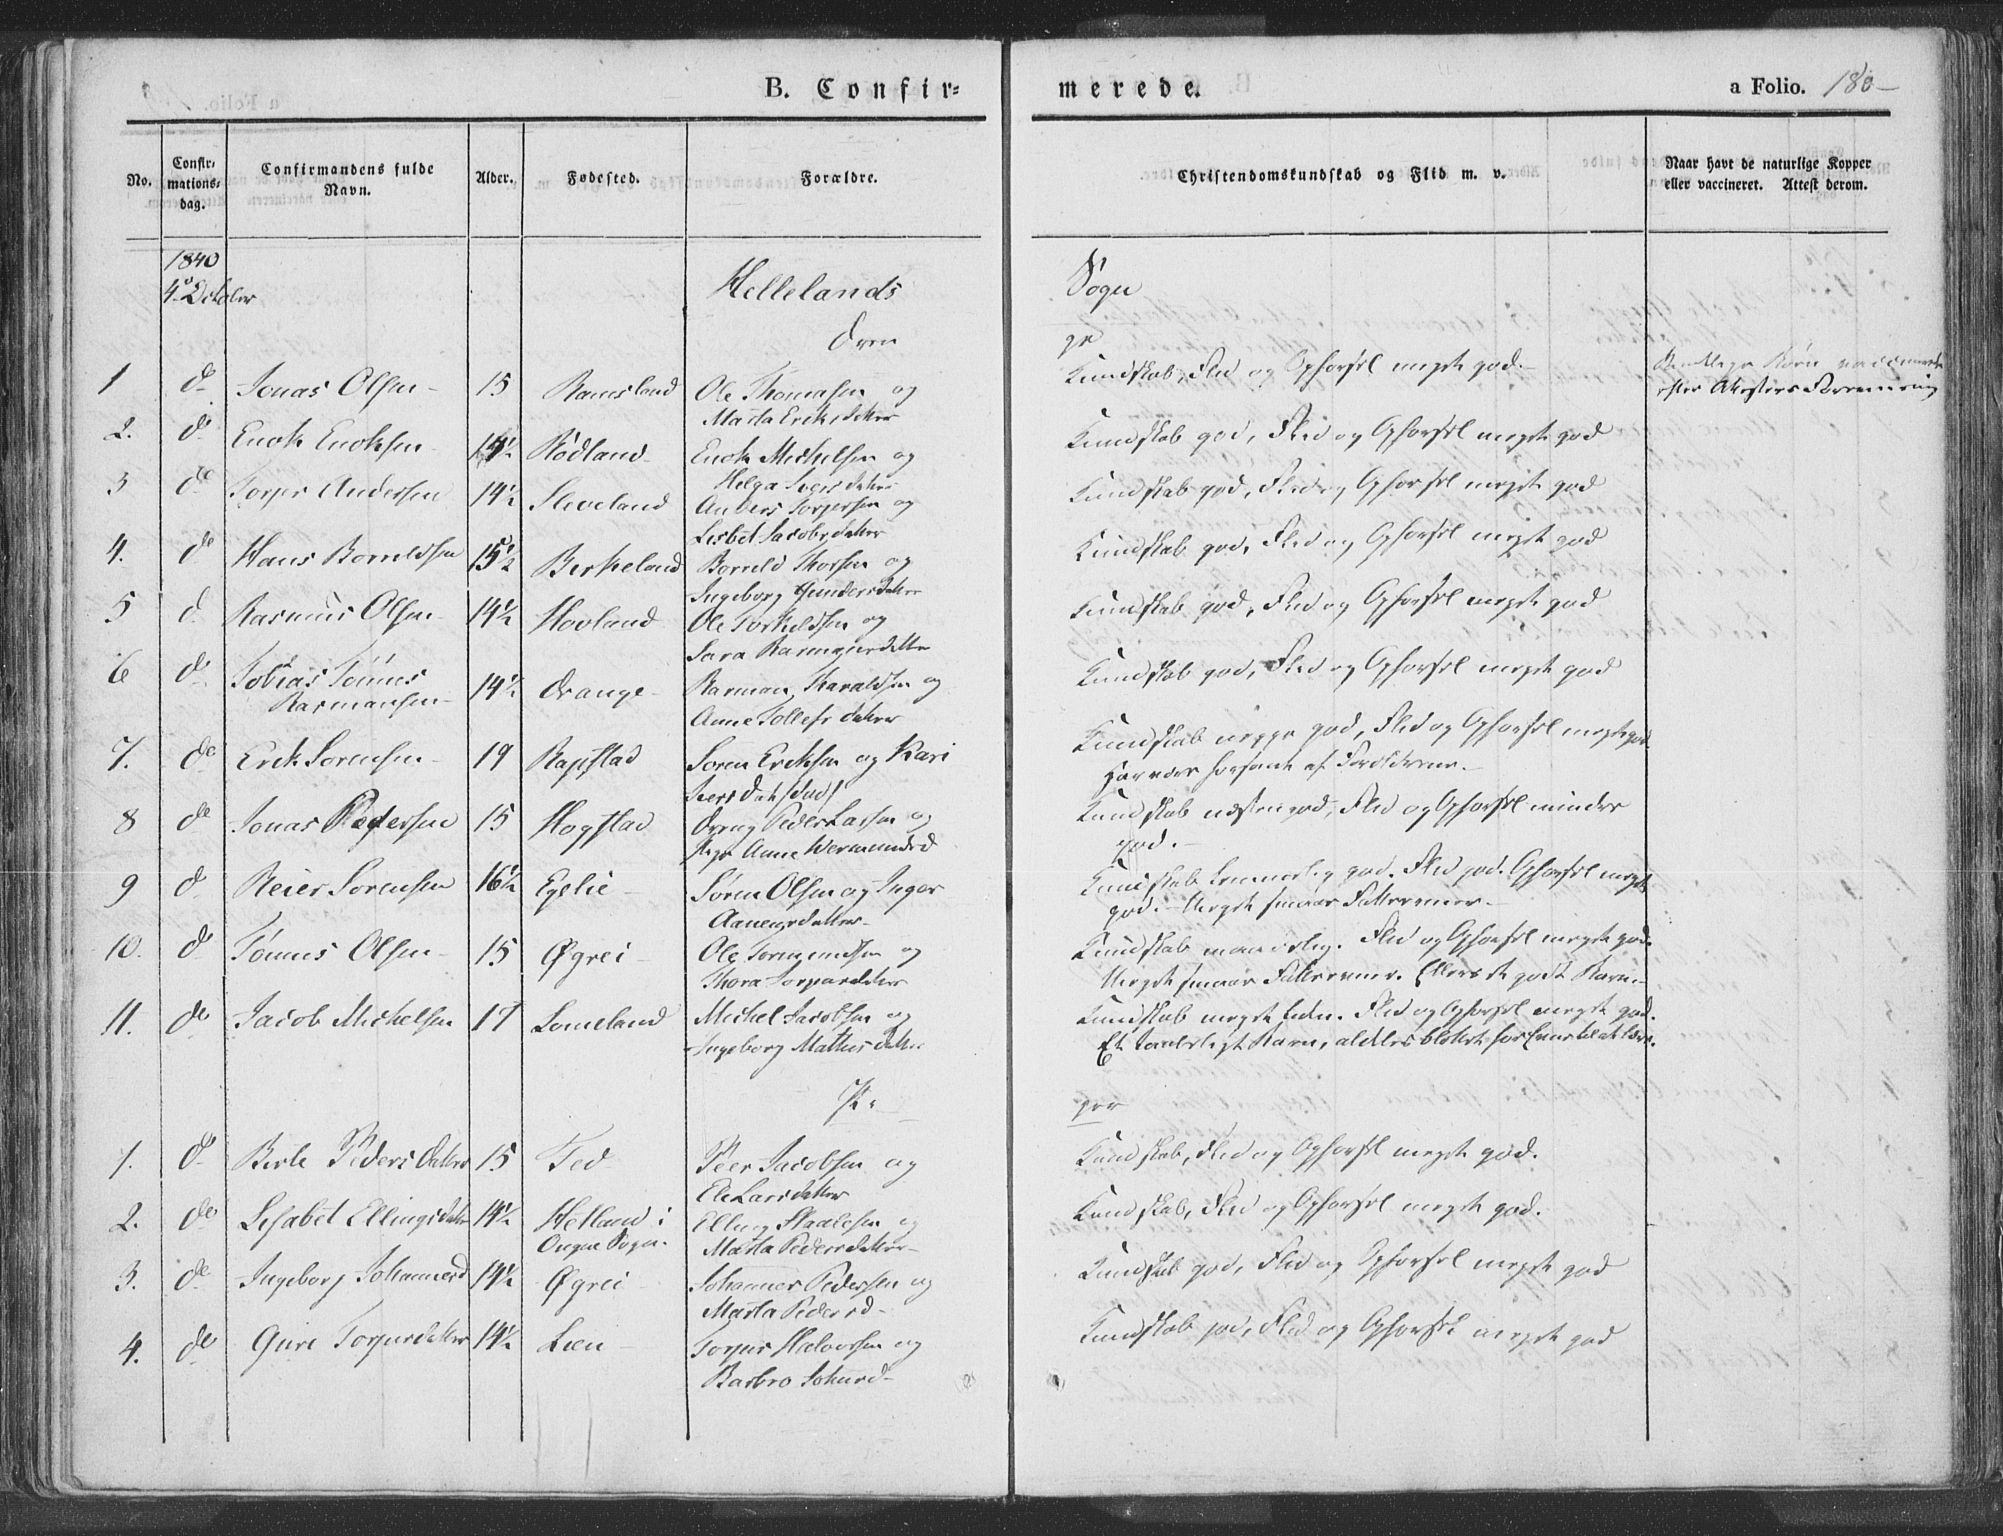 B. Confir-
merede.
a Folio. 180
No.
Confir-
mations-
dag.
Confirmandens fulde
Navn.
Alder.
Fødested.
Forældre.
Christendomskundskab og Flid m. v.
Naar havt de naturlige Kopper
eller vaccineret. Attest derom.
1840
4 October
Hellelands
Sogn
Dren
ge
1 do Jonas Olsen 15 Ramsland Ole Thomasen og
Marta Eriksdatter
Kundskab, Flid og Opførsel meget god.
Børn vaccinerede
efter Attesters Forevisning
2. do Enok Enoksen 14½ Rødland Enok Michelsen og
Helga Iversdatter
Kundskab god, Flid og Opførsel meget god
3 do Torger Andersen 14½ Sleveland Anders Torgersen og
Lisbet Jacobsdatter
Kundskab god, Flid og Opførsel meget god
4. do Hans Borrildsen 15½ Birkeland Borrild Thorsen og
Ingeborg Gundersdatter
Kundskab god, Flid og Opførsel meget god
5 do Rasmus Olsen 14½ Hovland Ole Torkildsen og
Sara Rasmusdatter
Kundskab god, Flid og Opførsel meget god
6 do Tobias Tönnes
Rasmussen
14½ Orange Rasmus Haraldsen og
Anne Tollefsdatter
Kundskab god, Flid og Opførsel meget god
7. do Erik Sørensen 19 Rapstad Søren Eriksen og Kari
Iversdat
Kundskab neppe god, Flid og Opførsel meget god
Har været forsømt af Forældrene.
8 do Jonas Pedersen 15 Hogstad Dreng Peder Larsen og
Pige Anne Wermundsd
Kundskab næsten god, Flid og Opførsel mindre
god.
9 do Reier Sørensen 16½ Egelie Søren Olsen og Inger
Aanensdatter
Kundskab temmelig god. Flid god. Opførsel meget
god. Meget smaae Fatteevner.
10. do Tönnes Olsen 15 Øgrei Ole Tormundsen og
Thora Torgersdatter
Kundskab maadelig. Flid og Opførsel meget god.
Meget smaae Fatteevner. Ellers et godt Barn.
11. do Jacob Michelsen 17 Lomeland Michel Jacobsen og
Ingeborg Mathisdatter
Kundskab meget liden. Flid og Opførsel meget god.
Et Barn, aldeles blottet for Evner til at lære.
Pi
ger
1. do Berte Pedersdatter 15 Ted Peer Jacobsen og
Ele Larsdatter
Kundskab, Flid og Opførsel meget god.
2. do Lisabet Ellingsdatter 14½ Helland i
Ougne Sogn.
Elling Staalesen og
Marta Pedersdatter
Kundskab, Flid og Opførsel meget god.
3. do Ingeborg Johannesd 14½ Øgrei Johannes Pedersen og
Marta Pedersd
Kundskab god, Flid og Opførsel meget god
4. do Guri Torgersdatter 14½ Lien Torger Halvorsen og
Barbro Johnsd
Kundskab god, Flid og Opførsel meget god